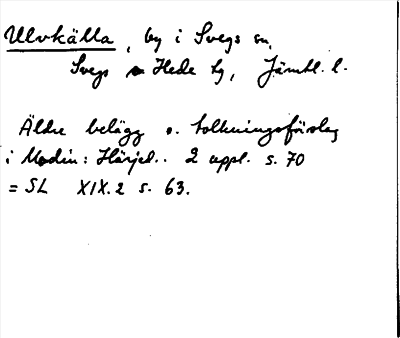 Ulvkälla, by i Svegs sn,
Svegs o Hede tg, Jämtl. l.
Äldre belägg o. tolkningsförslag
i Modin: Härjed.. 2 uppl. s. 70
= SL XIX.2 s. 63.